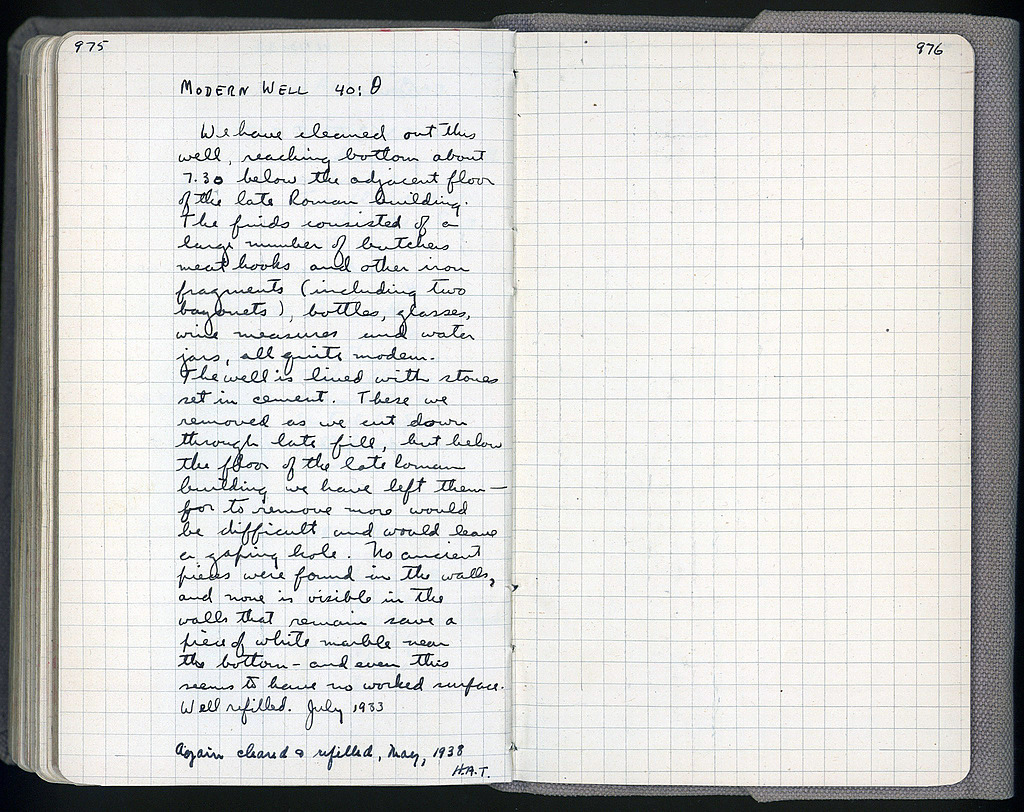 975
MODERN WELL 40: Θ
We have cleaned out this
well, reaching bottom about
7.30 below the adjacent floor
of the late Roman building.
The finds consisted of a
large number of butchers
meat hooks and other iron
fragments (including two
bayonets), bottles, glasses,
wine measures and water
jars, all quite modern.
The well is lined with stones
set in cement. These we
removed as we cut down
through late fill, but below
the floor of the late Roman
building we have left them –
for to remove more would
be difficult and would leave
a gaping hole. No ancient
pieces were found in the walls,
and none is visible in the
walls that remain save a
piece of white marble near
the bottom – and even this
seems to have no worked surface.
Well refilled. July 1933
Again cleared & refilled, May, 1938
H.A.T.
976